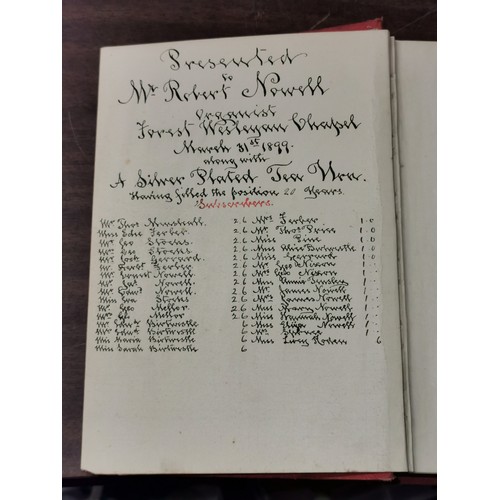 Presented
to
Mr Robert Nowell
Organist
Forest Wesleyan Chapel
March 31st 1899.
along with
A Silver Plated Tea Urn.
Having filled the position 20 Years.
Subscribers.
Mr Thos 2 6 Mrs Ferber 1 . 0
Miss Edie Ferber 2 6 Mr Thos Price 1 . 0
Mr Geo Stocks 2 6 Miss Line 1 . 0
Mr Geo Stocks 2 6 Miss Alice Birtwistle 1 . 0
Mr Gerrard 2 6 Miss Gerrard 1 . 0
Mr Ferber 2 6 Mr Geo Nixon
Mr Nowell 2 6 Mrs Geo Nixon
Mr Jas Nowell 2 6 Miss Annie
Mr Edwd Nowell 2 6 Mr James Nowell
Miss Eva Stocks 2 6 Mrs James Nowell
Mr Geo Mellor 2 6 Miss Nowell
Mrs Mellor 2 6 Miss Hannah Nowell
Mr Birtwistle 6 Miss Eliza Nowell
Mr Birtwistle 6 Mrs
Miss Maria Birtwistle 6 Miss Lucy 6
Miss Sarah Birtwistle 6